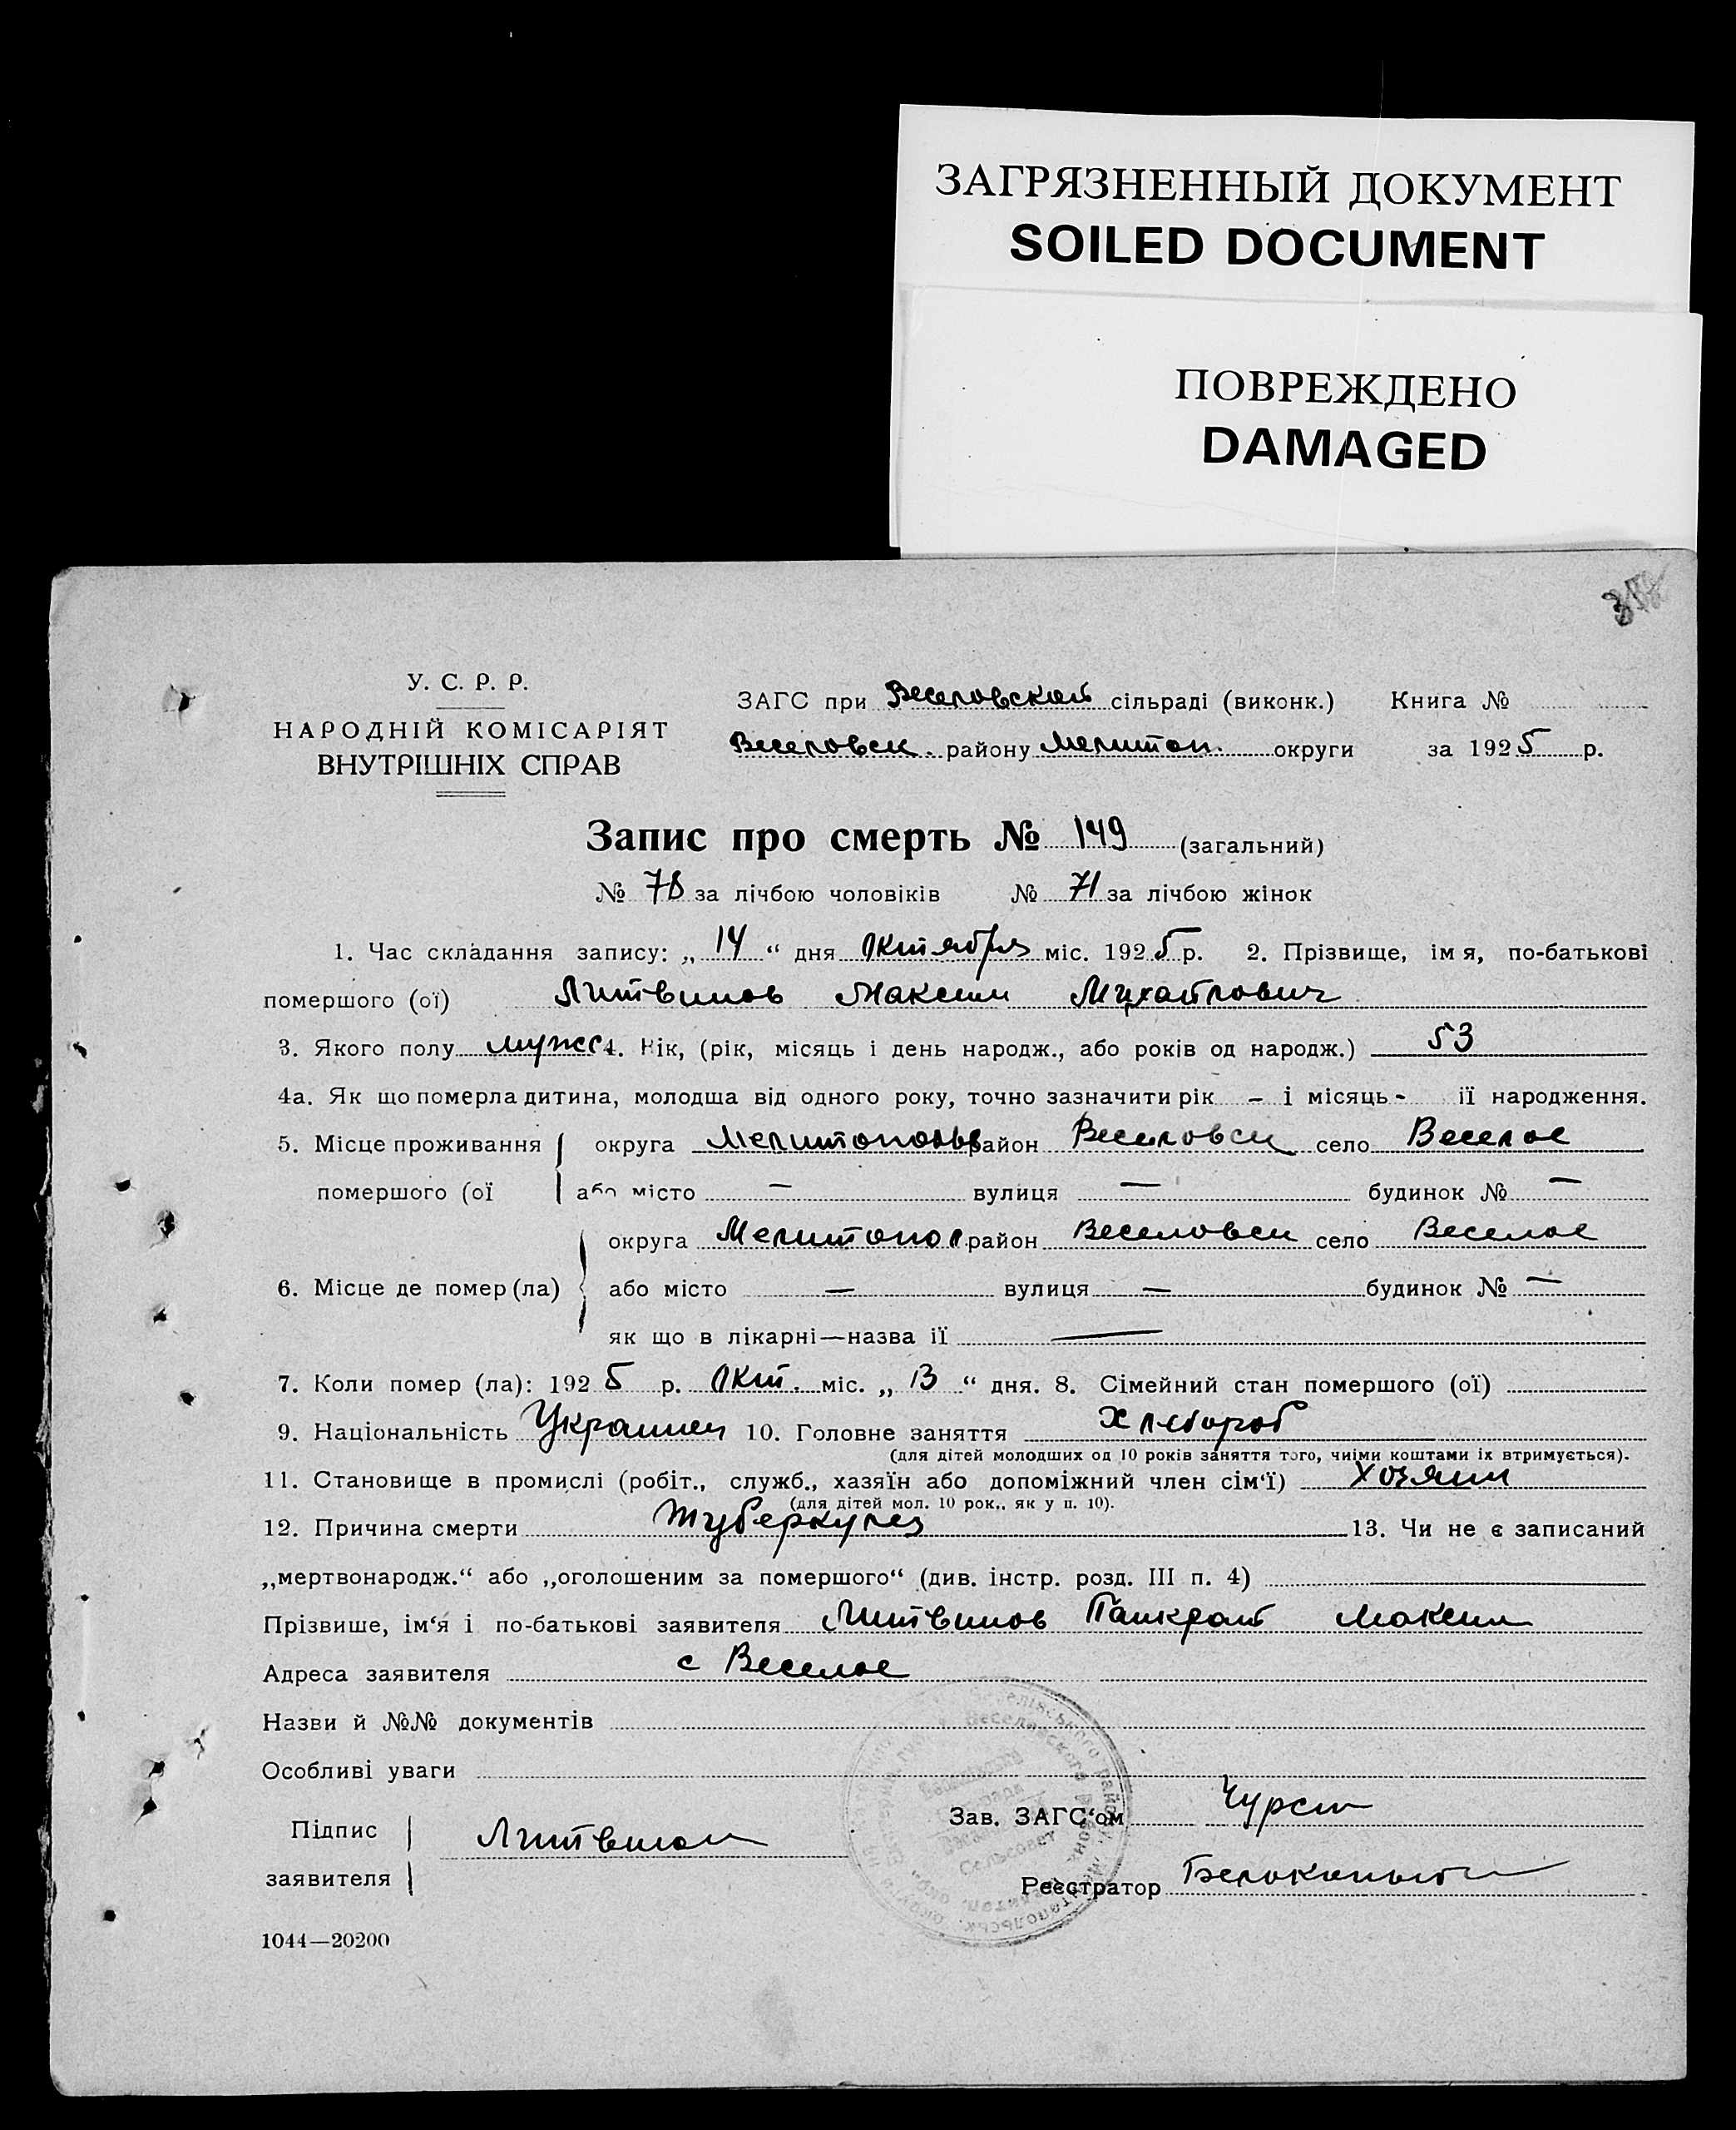 ЗАГРЯЗНЕННЫЙ ДОКУМЕНТ
SOILED DOCUMENT
ПОВРЕЖДЕНО
DAMAGED
У. С. Р. Р.
НАРОДНІЙ КОМІСАРІЯТ
ВНУТРІШНІХ СПРАВ
ЗАГС при Веселовской сільраді (виконк.) Книга №
Веселовск. району Мелитоп. округи за 1925 р.
Запис про смерть № 149 (загальний)
№ 78 за лічбою чоловіків № 71 за лічбою жінок
1. Час складання запису: „14“ дня Октября міс. 1925 р. 2. Прізвище, імя, по-батькові
помершого (ої) Литвинов Максим Михайлович
3. Якого полу мужс 4. Вік, (рік, місяць і день народж., або років од народж.) 53
4а. Як що померла дитина, молодша від одного року, точно зазначити рік - і місяць - її народження.
5. Місце проживання округа Мелитопольс район Веселовск село Веселое
помершого (ої або місто — вулиця — будинок № —
округа Мелитопол. район Веселовск село Веселое
6. Місце де помер (ла) або місто — вулиця — будинок № —
як що в лікарні—назва її —
7. Коли помер (ла): 1925 р. Окт. міс. „13“ дня. 8. Сімейний стан помершого (ої)
9. Національність Украинец 10. Головне заняття Хлебороб
(для дітей молодших од 10 років заняття того, чиїми коштами їх втримується).
11. Становище в промислі (робіт., служб., хазяїн або допоміжний член сім‘ї) Хозяин
(для дітей мол. 10 рок., як у п. 10).
12. Причина смерти туберкулез 13. Чи не є записаний
„мертвонародж.“ або „оголошеним за помершого“ (див. інстр. розд. III п. 4)
Прізвише, ім‘я і по-батькові заявителя Литвинов Панкрат Максим
Адреса заявителя с Веселое
Назви й №№ документів
Особливі уваги
Зав. ЗАГС‘ом
Підпис
заявителя Литвинов
Реєстратор
1044—20200